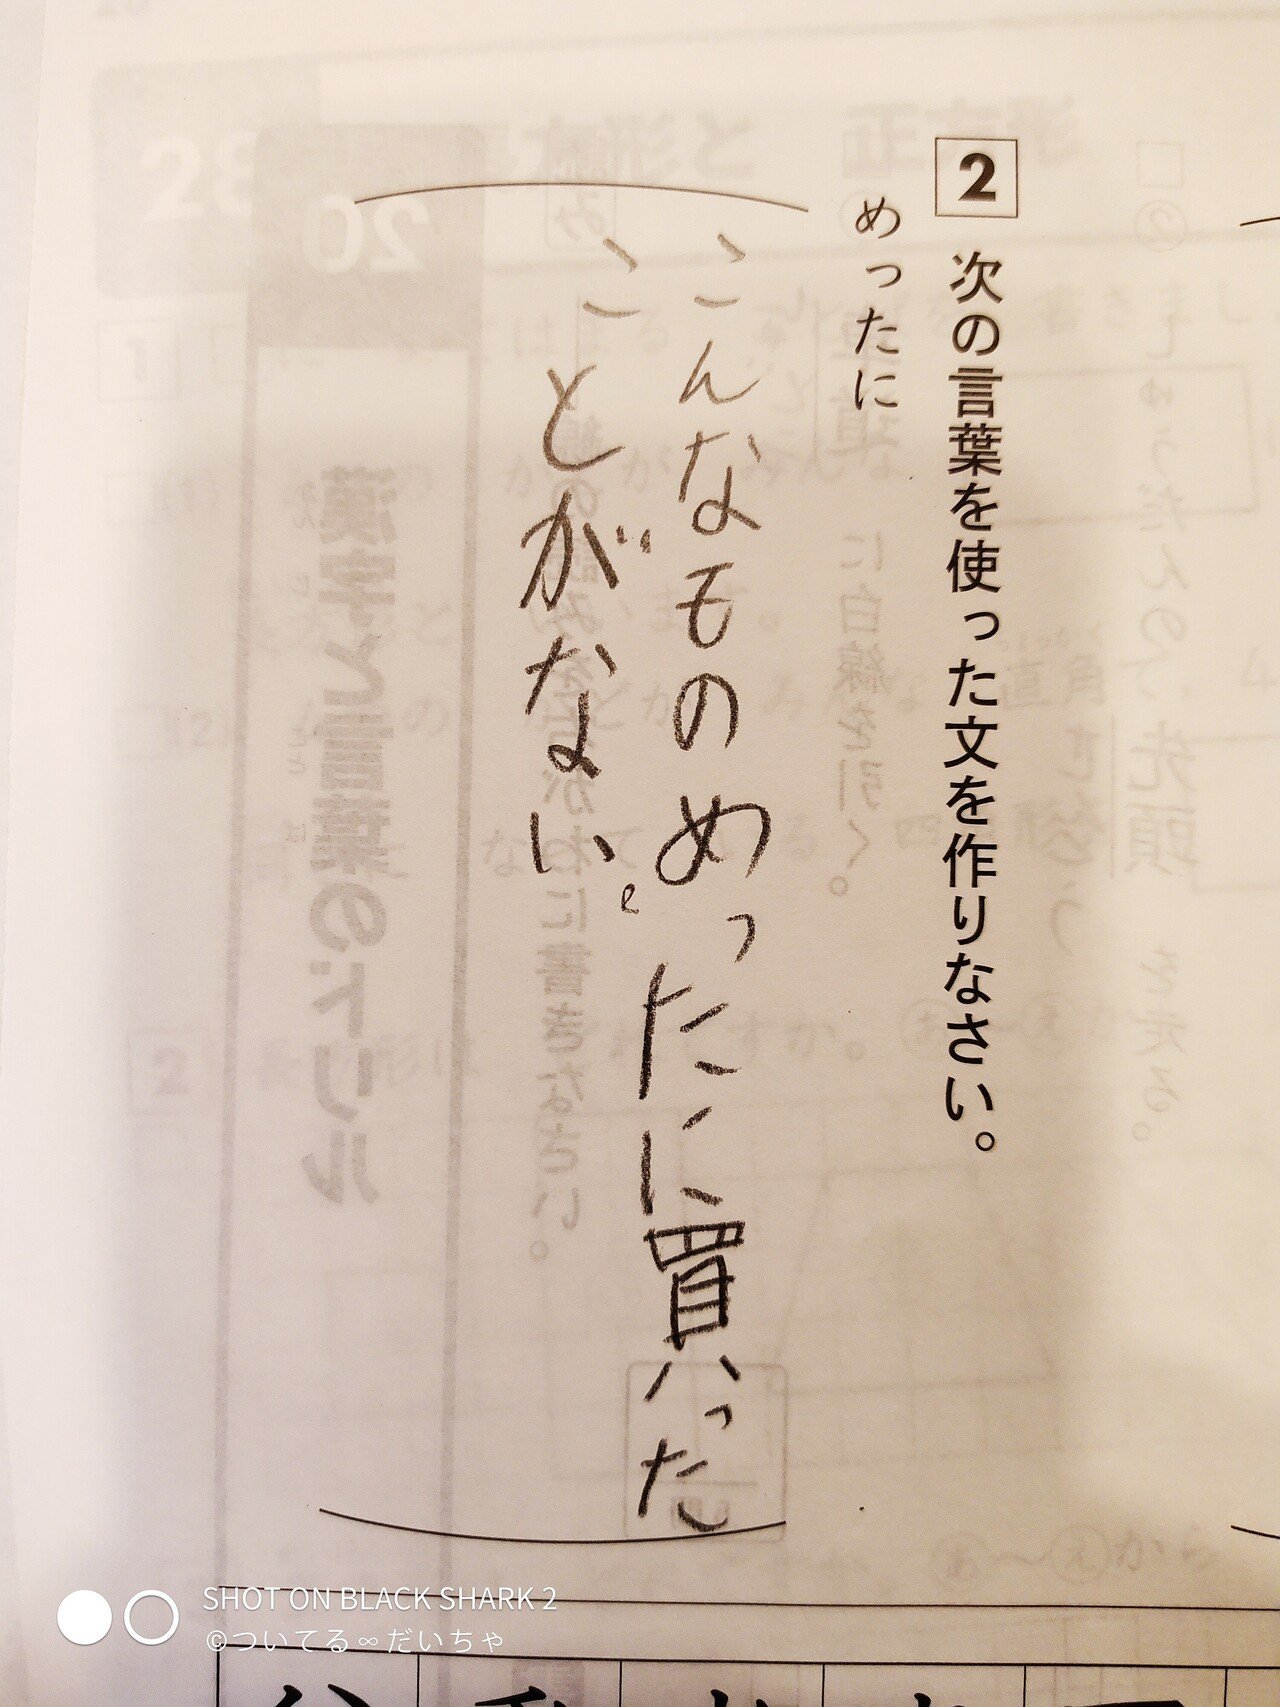 2 次の言葉を使った文を作りなさい。
めったに
こんなものめったに買った
ことがない。
SHOT ON BLACK SHARK 2
©ついてる∞だいちゃ